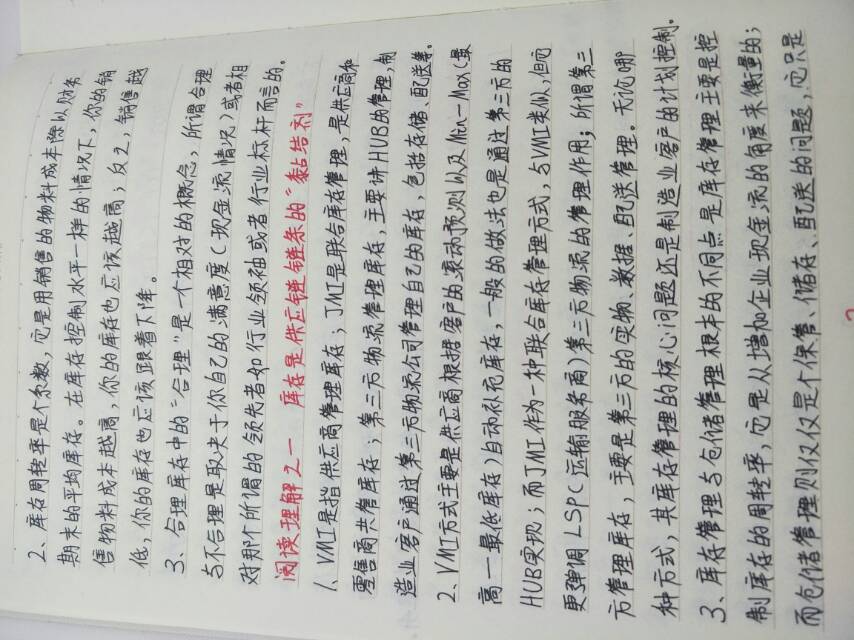 2、库存周转率是个系数，它是用销售的物料成本除以财务
期末的平均库存。在库存控制水平一样的情况下，你的销
售物料成本越高，你的库存也应该越高；反之，销售越
低，你的库存也应该跟着下降。
3、合理库存中的“合理”是一个相对的概念，所谓合理
与不合理是取决于你自己的满意度（现金流情况）或者相
对那个所谓的领先者如行业领袖或者行业标杆而言的。
阅读理解之一 库存是供应链链条的“黏结剂”
1、VMI是指供应商管理库存；JMI是联合库存管理，是供应商和
零售商共管库存；第三方物流管理库存，主要讲HUB的管理，制
造业客户通过第三方物流公司管理自己的库存，包括存储、配送等。
2、VMI方式主要是供应商根据客户的滚动预测以及Min-Max（最
高一最低库存）自动补充库存，一般的做法也是通过第三方的
HUB实现；而JMI作为一种联合库存管理方式，与VMI类似，但
更强调LSP（运输服务商）第三方物流的管理作用；所谓第三
方管理库存，主要是第三方的实物、数据、配送管理。无论哪
种方式，其库存管理的核心问题还是制造业客户的计划控制。
3、库存管理与仓储管理根本的不同点是库存管理主要是控
制库存的周转率，它是从增加企业现金流的角度来衡量的；
而仓储管理则仅仅是个保管、储存、配送的问题，它只是